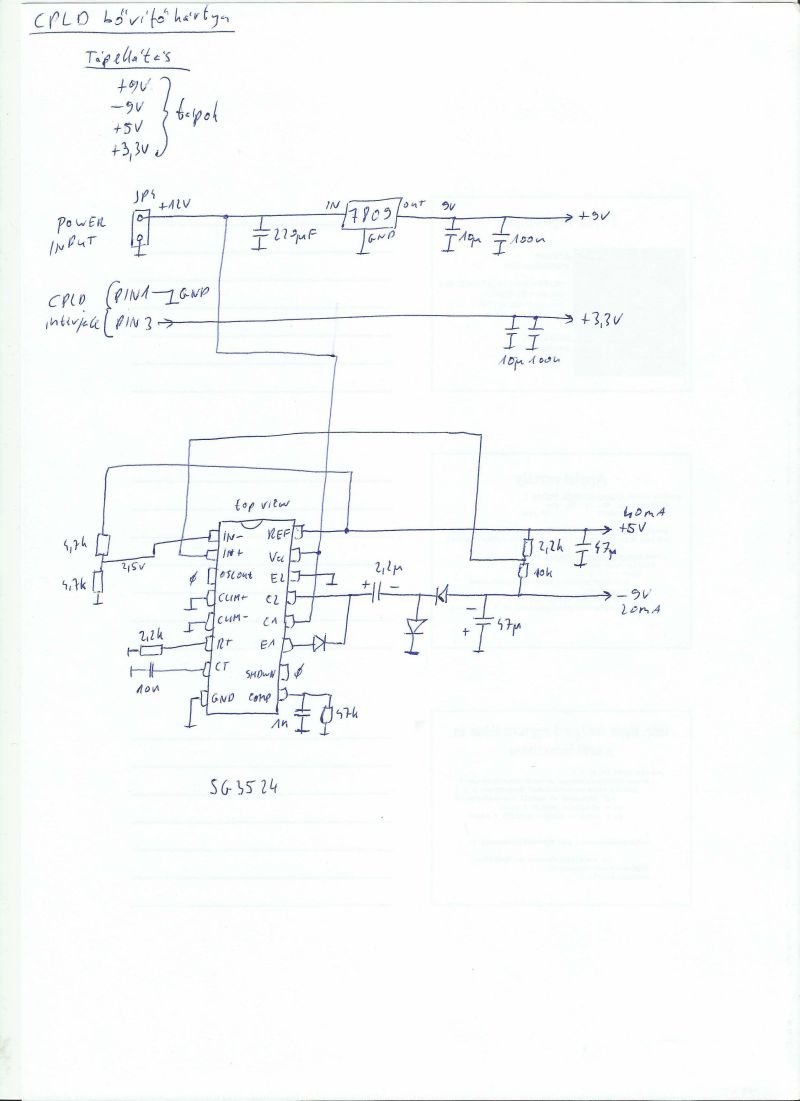 CPLD bővítő kártya
Tápellátás
+9V
-9V
+5V
+3,3V
tápok
JP4
+12V
POWER
INPUT
220µF
IN
7809
OUT
GND
9V
10µ
100n
+9V
CPLD
interface
PIN1
GND
PIN 3
+3,3V
10µ 100n
top view
4,7k
4,7k
2,5V
IN-
IN+
OSCout
CLIM+
CLIM-
RT
CT
GND
REF
Vcc
E2
C2
C1
E1
SHDWN
COMP
2,2k
10n
1n
47k
2,2µ
+
-
40mA
+5V
2,2k
47µ
10k
-9V
20mA
-
+
47µ
SG3524